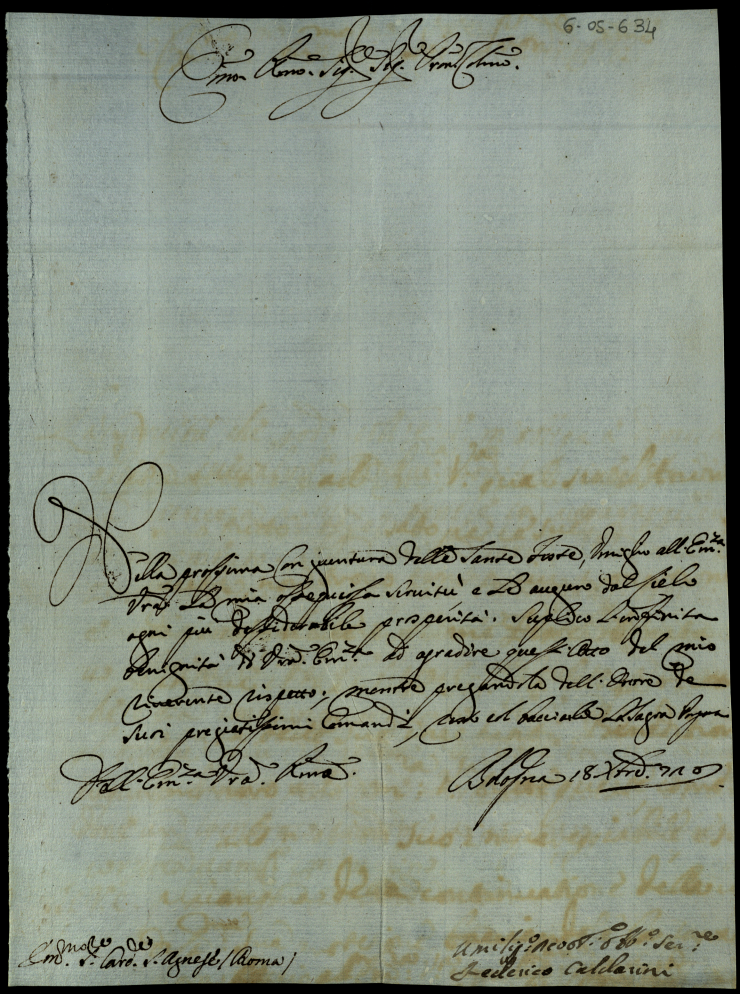 6-05-634
Emo. Rmo. Sig.re Sig.re Pron. Colmo.
Nella prossima congiuntura delle Sante Feste, umiglio all'Em.za
Vra. la mia ossequiosa servitù e le auguro dal Cielo
ogni più desiderabile prosperità. Suplico l'infinita
benignità di Vra. Em.za ad agradire quest'atto del mio
riverente rispetto; mentre pregandola dell'onore de
suoi pregiatissimi comandi, resto col bacciarle la Sagra Porpora
Dell'Em.za Vra. Rma.
Bologna 18 Xbre. 710
Em.mo Sr. Card.le S. Agnese / Roma /
Umiliss.o Devot.o Obb.o Ser.re
Federico Calderini